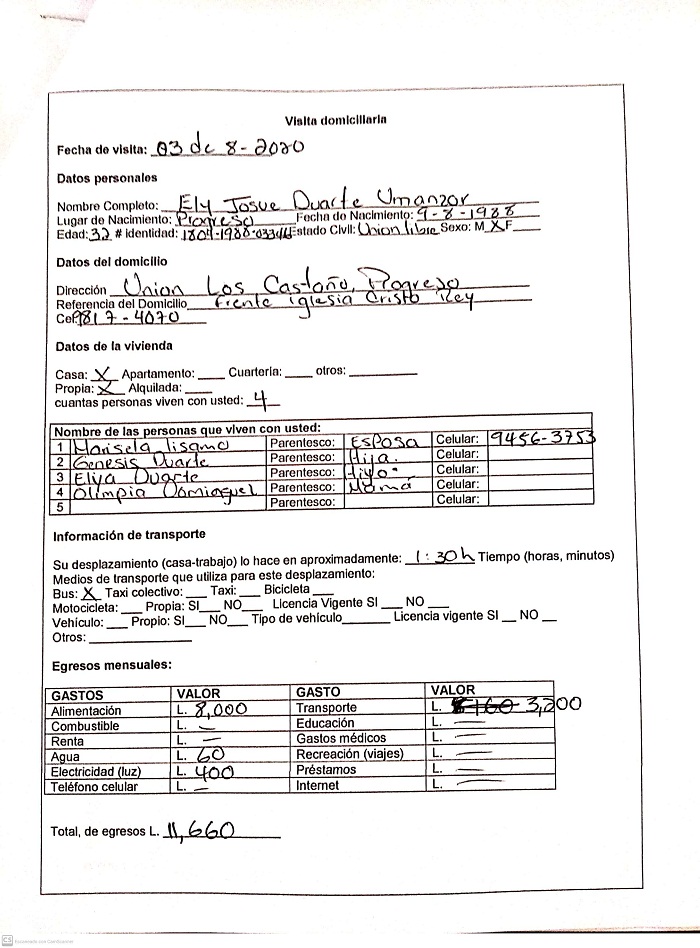 Visita domiciliaria
Fecha de visita: 03 de 8-2020
Datos personales
Nombre Completo: Ely Josue Duarte Umanzor
Lugar de Nacimiento: Progreso Fecha de Nacimiento: 9-8-1988
Edad: 32 # identidad: 1804-1988-03346 Estado Civil: Union libre Sexo: M X F
Datos del domicilio
Dirección Union Los Castaño, Progreso
Referencia del Domicilio frente iglesia Cristo Rey
Cel: 9817-4070
Datos de la vivienda
Casa: X Apartamento: ____ Cuarteria: ____ otros: ____
Propia: X Alquilada: ____
cuantas personas viven con usted: 4
Nombre de las personas que viven con usted:
1 Marisela Parentesco: Esposa Celular: 9456-3753
2 Genesis Duarte Parentesco: Hija. Celular:
3 Duarte Parentesco: Hijo. Celular:
4 Olimpia Parentesco: Mamá Celular:
5 Parentesco: Celular:
Información de transporte
Su desplazamiento (casa-trabajo) lo hace en aproximadamente: 1:30h Tiempo (horas, minutos)
Medios de transporte que utiliza para este desplazamiento:
Bus: X Taxi colectivo: ___ Taxi: ___ Bicicleta ___
Motocicleta: ___ Propia: SI___ NO___ Licencia Vigente SI ___ NO ___
Vehículo: ___ Propio: SI___ NO___ Tipo de vehículo_______ Licencia vigente SI __ NO __
Otros: ______________
Egresos mensuales:
GASTOS VALOR GASTO VALOR
Alimentación L. 8,000 Transporte L. 3,200
Combustible L. — Educación L. —
Renta L. — Gastos médicos L. —
Agua L. 60 Recreación (viajes) L. —
Electricidad (luz) L. 400 Préstamos L. —
Teléfono celular L. — Internet L. —
Total, de egresos L. 11,660
CS Escaneado con CamScanner